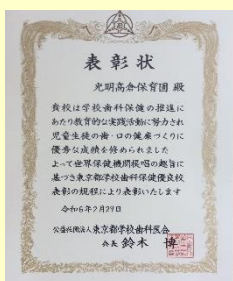 表彰状
光明高倉保育園 殿
貴校は学校歯科保健の推進に
あたり教育的な実践活動に努力され
児童生徒の歯・口の健康づくりに
優秀な成績を修められました
よって世界保健機関提唱の趣旨に
基づき東京都学校歯科保健優良校
表彰の規程により表彰いたします
令和6年2月29日
公益社団法人東京都学校歯科医会
会長 鈴木 博